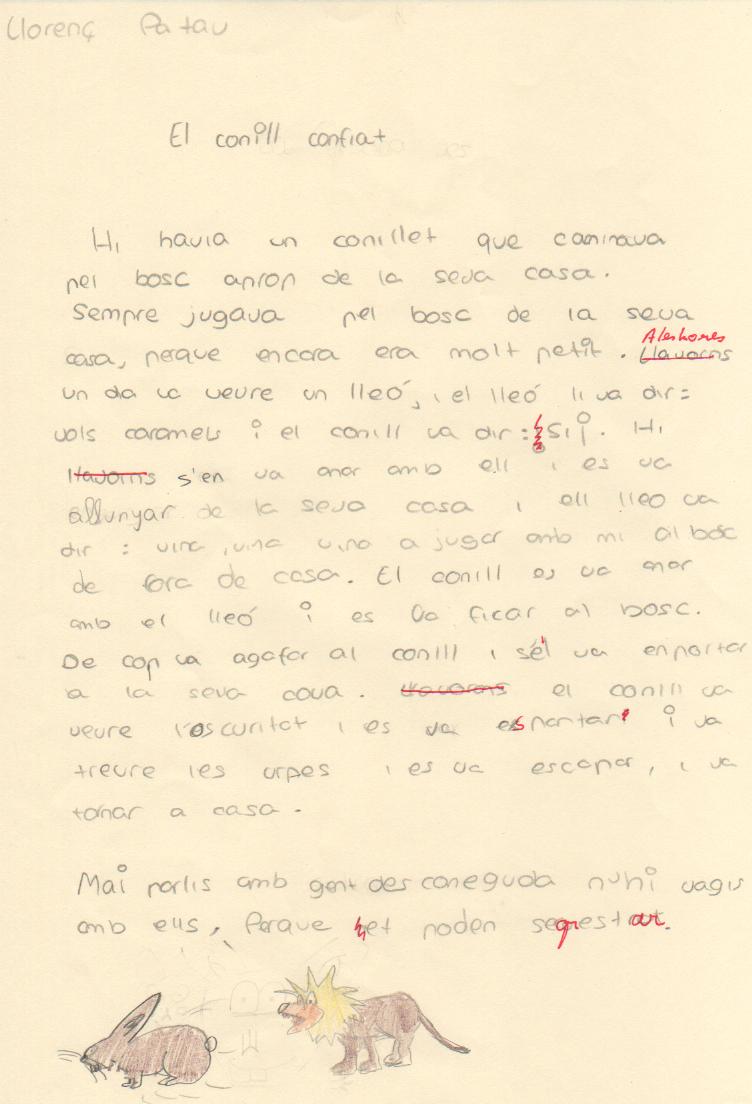 Llorenç Patau
El conill confiat
Hi havia un conillet que caminava
pel bosc aprop de la seva casa.
Sempre jugava pel bosc de la seva
casa, perque encara era molt petit. Aleshores Llavorns
un dia va veure un lleó, i el lleó li va dir:
vols caramels i el conill va dir: Si¡. Hi
llavorns s'en va anar amb ell i es va
allunyar de la seva casa i ell lleo va
dir: vina, vina vina a jugar amb mi al bosc
de fora de casa. El conill es va anar
amb el lleó i es va ficar al bosc.
De cop va agafar al conill i sél va enportar
a la seva cova. llavorns el conill va
veure l'oscuritat i es va espantar i va
treure les urpes i es va escapar, i va
tornar a casa.
Mai parlis amb gent desconeguda nuhi vagis
amb ells, Perque et poden seqrestar.